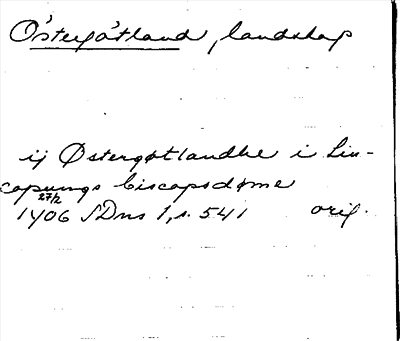 Östergötland, landskap
ij Østergøtlandhe i Lin-
copungs biscopsdøme
27/2
1406 SDns 1, s. 541 orig.